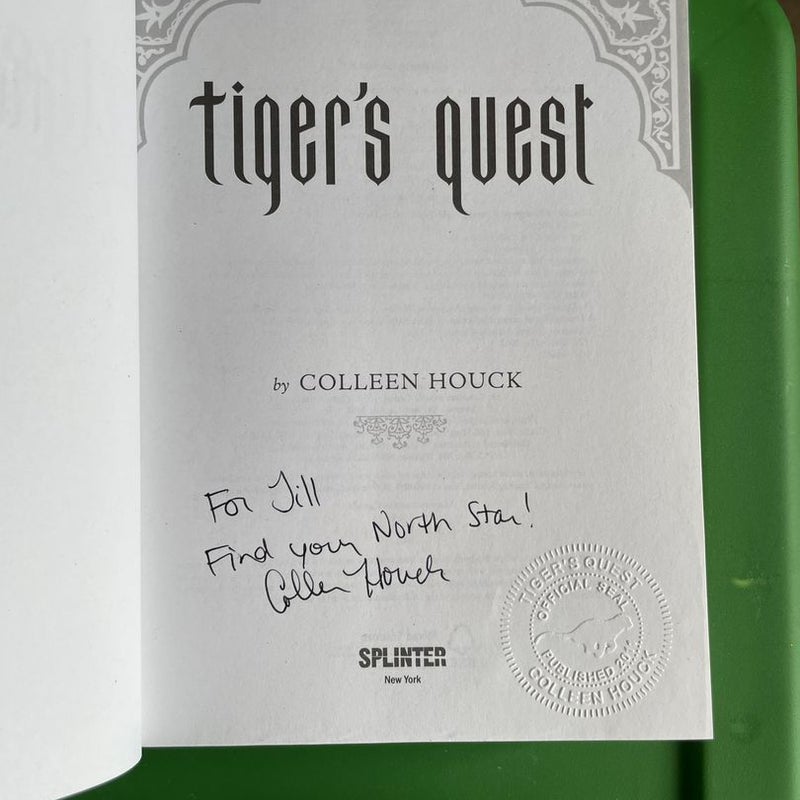 tiger's quest
by COLLEEN HOUCK
For Jill
Find your North Star!
Colleen Houck
SPLINTER
New York
TIGER'S QUEST
OFFICIAL SEAL
PUBLISHED 2011
COLLEEN HOUCK